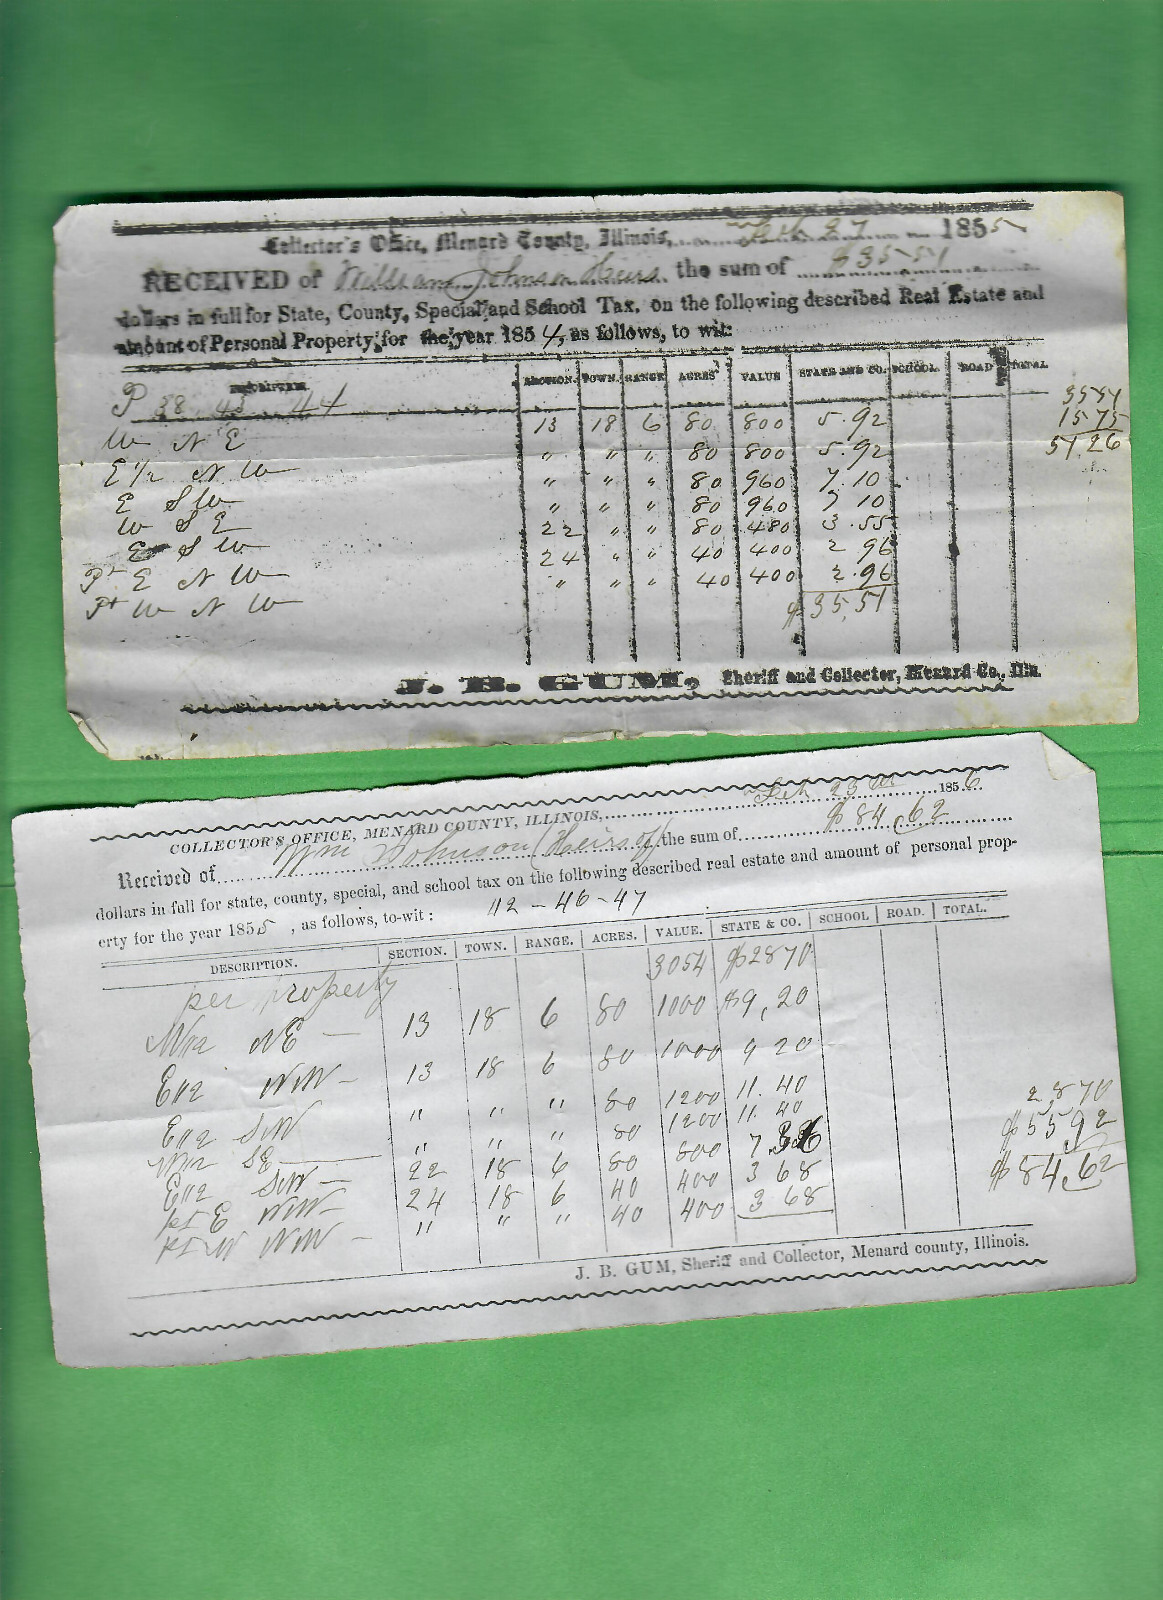 Collector's Office, Menard County, Illinois, Feb 27 1855
RECEIVED of William Johnson Heirs the sum of $35.51
dollars in full for State, County, Special and School Tax, on the following described Real Estate and
amount of Personal Property for the year 1854, as follows, to wit:
SECTION. TOWN. RANGE ACRES VALUE STATE AND CO. SCHOOL. ROAD TOTAL
P 38 43 44
W N E 13 18 6 80 800 5.92
E 1/2 N W " " " 80 800 5.92
E S W " " " 80 960 7.10
W S E " " " 80 960 7 10
E S W 22 " " 80 480 3.55
Pt E N W 24 " " 40 400 2 96
Pt W N W " " " 40 400 2.96
$35,51
1575
51.26
J. B. GUM, Sheriff and Collector, Menard Co., Ills.
COLLECTOR'S OFFICE, MENARD COUNTY, ILLINOIS, Feb 23rd 1856
Received of Wm Johnson (Heirs of) the sum of $84,62
dollars in full for state, county, special, and school tax on the following described real estate and amount of personal prop-
erty for the year 1855, as follows, to-wit: 42-46-47
DESCRIPTION. SECTION. TOWN. RANGE. ACRES. VALUE. STATE & CO. SCHOOL ROAD. TOTAL.
per property 3054 $2870
W12 NE 13 18 6 80 1000 $9,20
E12 NW 13 18 6 80 1000 9 20
E12 SW " " " 80 1200 11.40
W12 SE " " " 80 1200 11.40
E12 SW 22 18 6 80 800 7 36
pt E NW 24 18 6 40 400 3 68
pt W NW " " " 40 400 3 68
2,870
$55 92
$84,62
J. B. GUM, Sheriff and Collector, Menard county, Illinois.